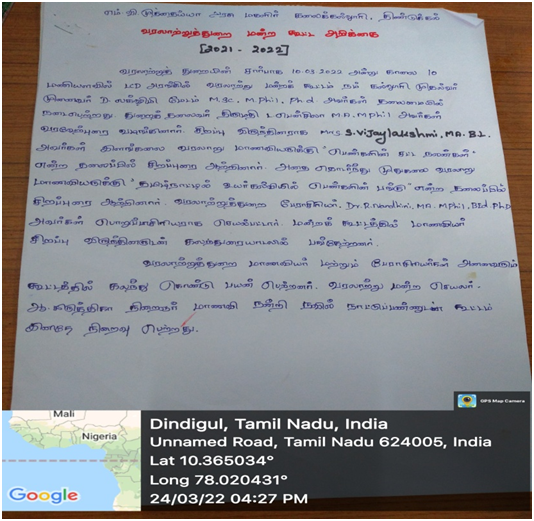 எம்.வி.முத்தையா அரசு மகளிர் கலைக்கல்லூரி, திண்டுக்கல்
வரலாற்றுத்துறை மன்ற கூட்ட அறிக்கை
[2021 - 2022]
வரலாற்றுத் துறையின் சார்பாக 10-03-2022 அன்று காலை 10
மணியளவில் LCD அரங்கில் வரலாற்று மன்றக் கூட்டம் நம் கல்லூரி முதல்வர்
முனைவர் D. லக்ஷ்மி மேடம் M.Sc., M.Phil., Ph.d அவர்கள் தலைமையில்
நடைபெற்றது. துறைத் தலைவர் திருமதி M.A., M.Phil அவர்கள்
வரவேற்புரை வழங்கினார். சிறப்பு விருந்தினராக Mrs S. Vijaylakshmi, M.A. B.L.
அவர்கள் இளங்கலை வரலாறு மாணவியருக்கு "பெண்களின் சட்ட நலன்கள்"
என்ற தலைப்பில் சிறப்புரை ஆற்றினார். அதை தொடர்ந்து முதுகலை வரலாறு
மாணவியருக்கு உயர்கல்வியில் பெண்களின் பங்கு" என்ற தலைப்பில்
சிறப்புரை ஆற்றினார். வரலாற்றுத்துறை பேராசிரியர், Dr. R. nandhini, MA. MPhil, BEd. PhD
அவர்கள் பொறுப்பாசிரியராக செயல்பட்டார். மன்றக் கூட்டத்தில் மாணவியர்
சிறப்பு விருந்தினருடன் கலந்துரையாடலில் பங்கேற்றனர்.
வரலாற்றுத்துறை மாணவியர் மற்றும் பேராசிரியர்கள் அனைவரும்
கூட்டத்தில் கலந்து கொண்டு பயன் பெற்றனர். வரலாற்று மன்ற செயலர்.
மாணவி நன்றி நவில் நாட்டுப்பண்ணுடன் கூட்டம்
இனிதே நிறைவு பெற்றது.
GPS Map Camera
Mali
Nigeria
Google
Dindigul, Tamil Nadu, India
Unnamed Road, Tamil Nadu 624005, India
Lat 10.365034°
Long 78.020431°
24/03/22 04:27 PM